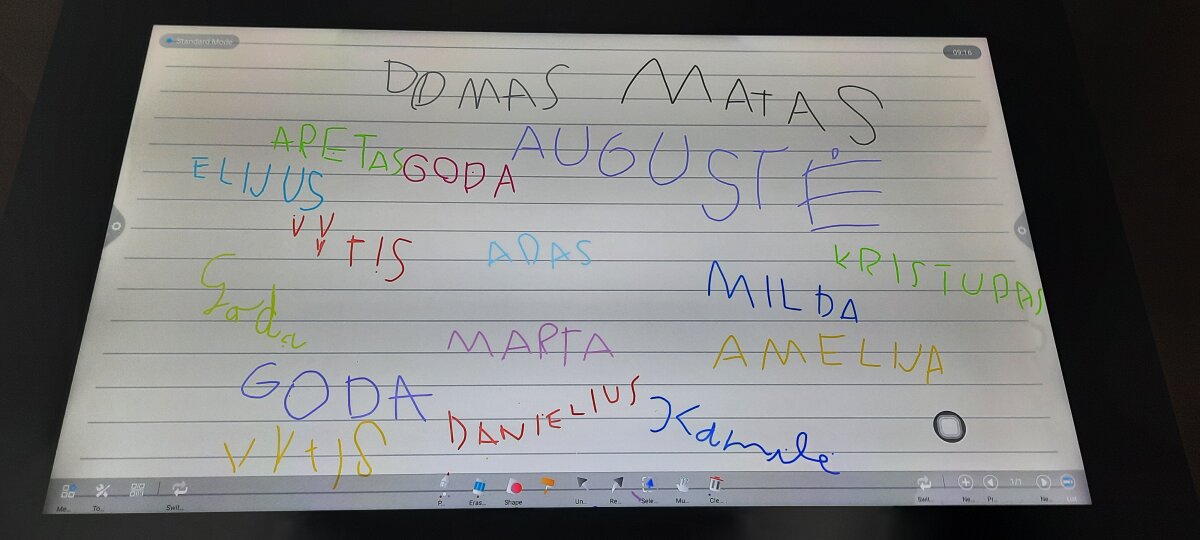 Standard Mode
09:16
DOMAS MATAS
ARETAS GODA AUGUSTĖ
ELIJUS
VYTIS ADAS KRISTUPAS
Goda MILDA
MARTA AMELIJA
GODA DANIELIUS Kamile
VYTIS
Me... To... Swit... P... Eras... Shape Un... Re... Sele... Mu... Cle... Swit... Ne... Pr... 1/1 Ne... List